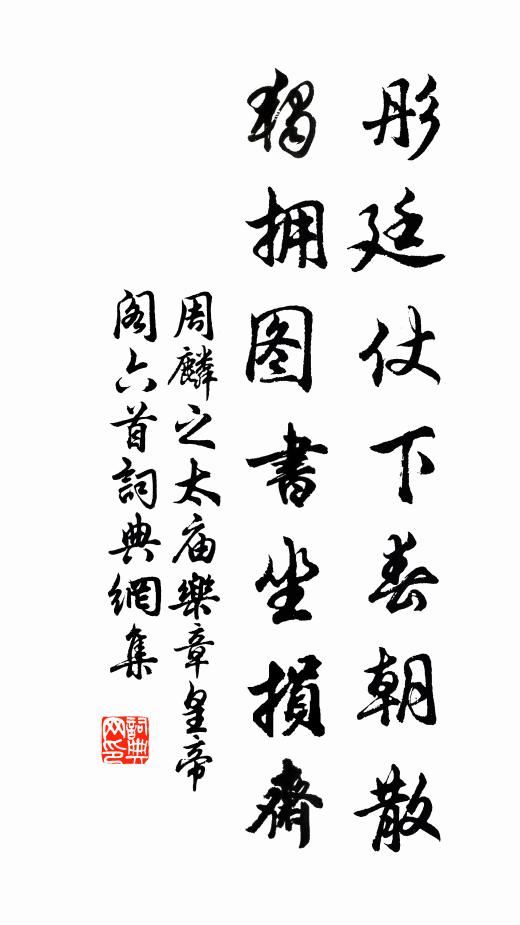 彤廷仗下春朝散
獨拥图書坐損齋
周麟之太庙樂章皇帝
阁六首詞典網集
詞典网印